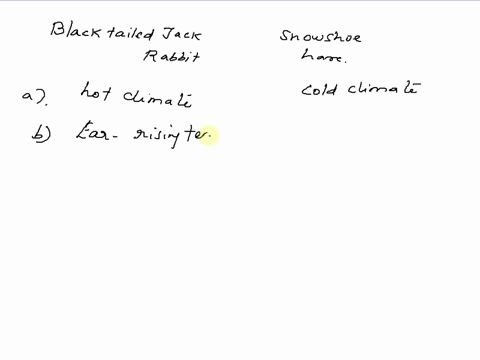 Black tailed Jack Rabbit
Snowshoe hare.
a). hot climate
cold climate
b) Ear - rising te.